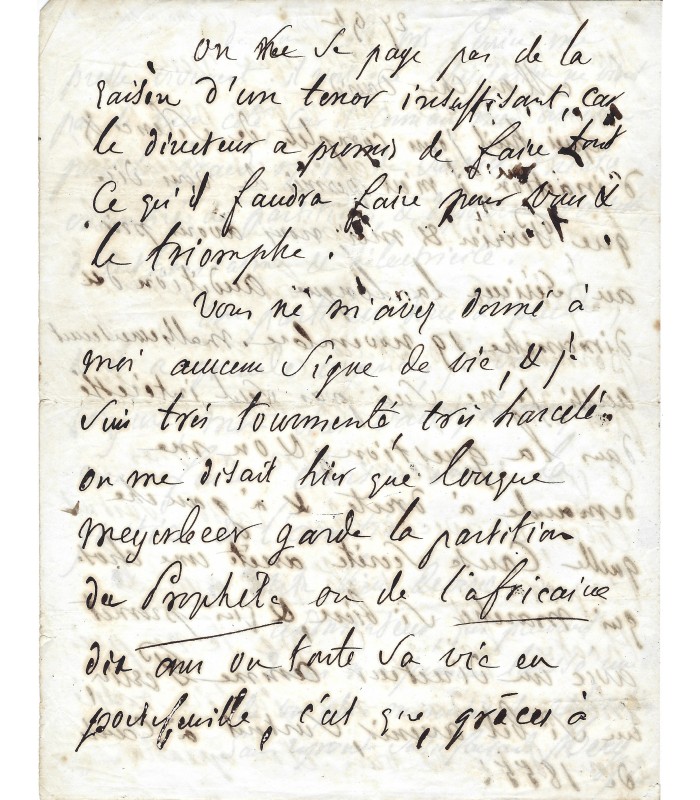 on ne se paye pas de la
raison d'un tenor insuffisant, car
le directeur a promis de faire tout
ce qu'il faudra faire pour vous &
le triomphe.
Vous ne m'avez donné à
moi aucun signe de vie, & j'
suis très tourmenté, très harcelé.
on me disait hier que lorsque
meyerbeer garde la partition
du Prophète ou de l'africaine
dix ans ou toute sa vie en
portefeuille, c'est que, grâces à